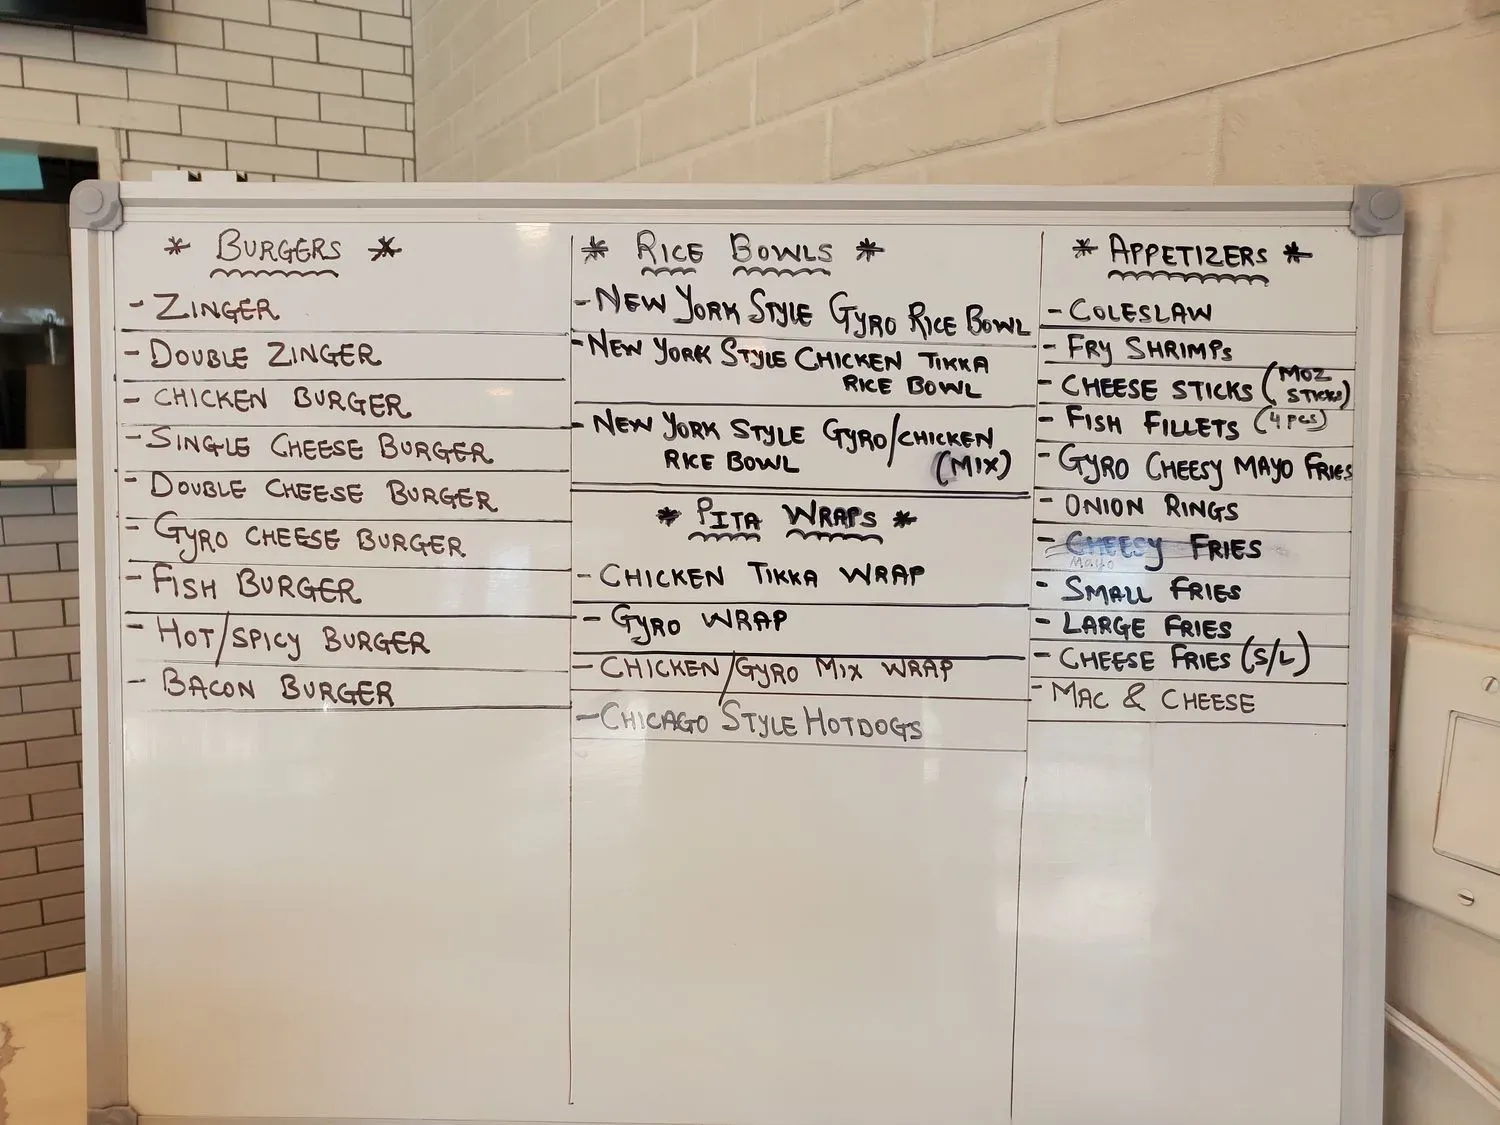 * BURGERS *
- ZINGER
- DOUBLE ZINGER
- CHICKEN BURGER
- SINGLE CHEESE BURGER
- DOUBLE CHEESE BURGER
- GYRO CHEESE BURGER
- FISH BURGER
- HOT/SPICY BURGER
- BACON BURGER
* RICE BOWLS *
- NEW YORK STYLE GYRO RICE BOWL
- NEW YORK STYLE CHICKEN TIKKA
RICE BOWL
- NEW YORK STYLE GYRO/CHICKEN
RICE BOWL (MIX)
* PITA WRAPS *
- CHICKEN TIKKA WRAP
- GYRO WRAP
- CHICKEN/GYRO MIX WRAP
- CHICAGO STYLE HOTDOGS
* APPETIZERS *
- COLESLAW
- FRY SHRIMPS
- CHEESE STICKS (MOZ
STICKS)
- FISH FILLETS (4 PCS)
- GYRO CHEESY MAYO FRIES
- ONION RINGS
- CHEESY FRIES
Mayo
- SMALL FRIES
- LARGE FRIES
- CHEESE FRIES (S/L)
- MAC & CHEESE